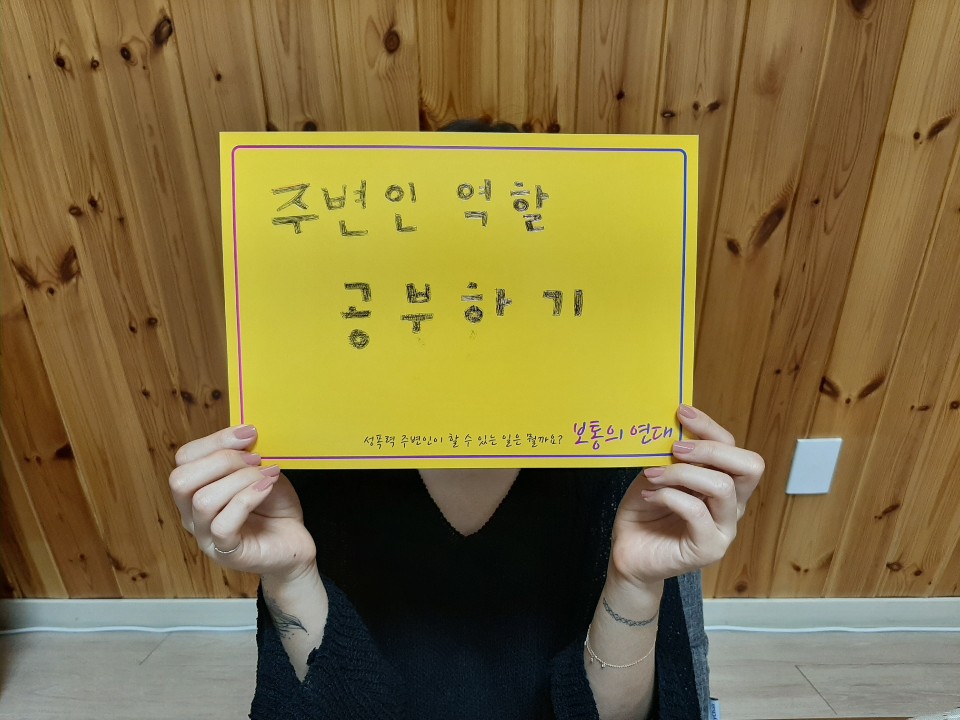 주변인 역할
공부하기
성폭력 주변인이 할 수 있는 일은 뭘까요? 보통의 연대